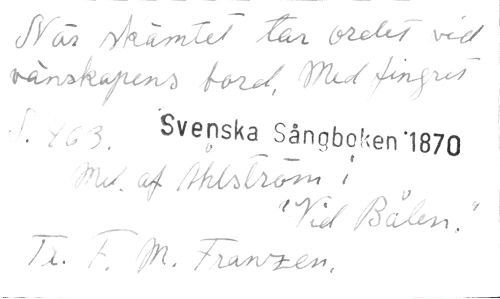 När skämtet tar ordet vid
vänskapens bord, Med fingret
S. 463. Svenska Sångboken 1870
Mel. af Åhlström i
"Vid Bålen."
Tr. F. M. Franzen.